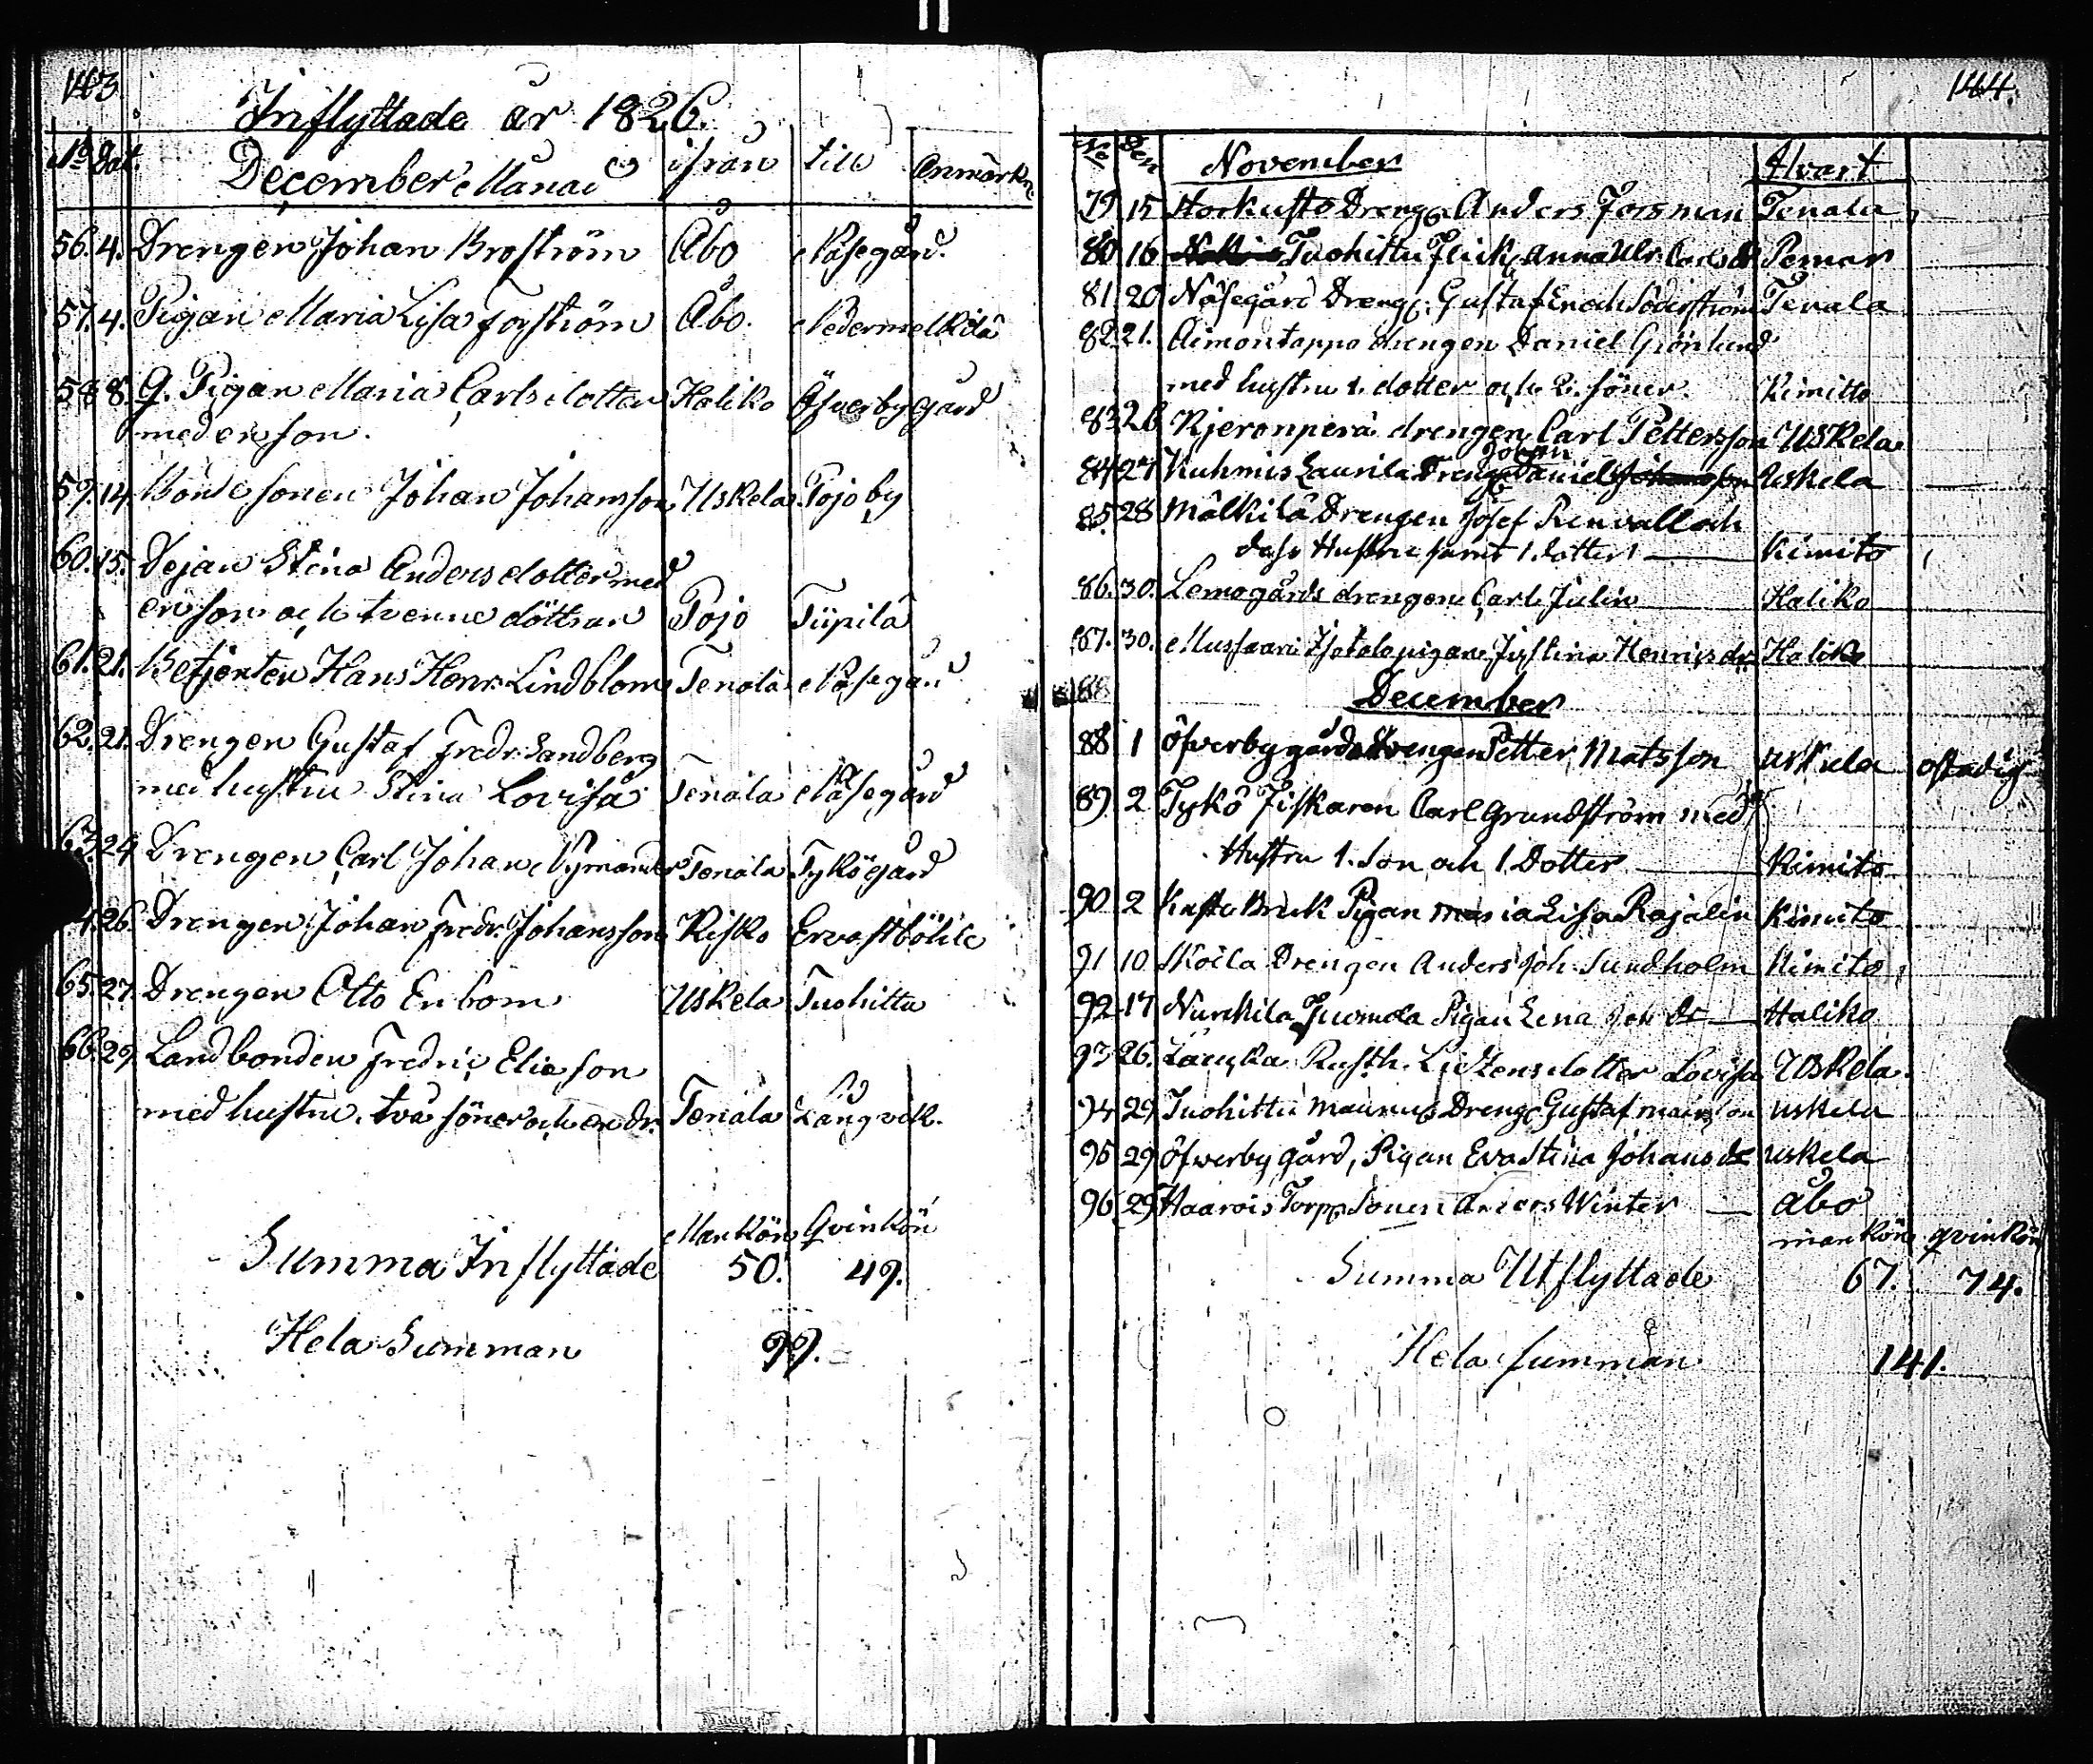 143.
Inflyttade år 1826.
No dat. December Månad ifrån till Anmärkn
56. 4. Drengen Johan Broström Åbo Näsegård.
57. 4. Pigan Maria Lisa Forström Åbo. Nedermelkilä
58 8. Q. Pigan Maria Carlsdotter Haliko Öfverby gård
med en son.
59. 14. Bonde sonen Johan Johansson Uskela Pojo by
60. 15. Dejan Stina Andersdotter med
en son och tvenne döttrar Pojo Tiipilä
61. 21. Betjenten Hans Henr. Lindblom Tenala Näsegård
62. 21. Drengen Gustaf Fredr. Sandberg
med hustru Stina Lovisa Tenala Näsegård
63. 24 Drengen Carl Johan Nymander Tenala Tykögård
4. 26. Drengen Johan Fredr. Johansson Kisko Ervastbölle
65. 27. Drengen Otto Enbom Uskela Tuohittu
66. 29. Landbonden Fredric Elieson
med hustru, två söner och en dr. Tenala Långvik.
Mankön Qvinkön
Summa Inflyttade 50. 49.
Hela Summan 99.
144.
No Den November Hvart
79 15 Storkusto Dreng. Anders Forsman Tenala
80 16 Tuohittu Flick. Anna Ulr. Carls dr Pemar
81 20 Näsegård Dreng. Gustaf Enoch Söderström Tenala
82 21. Aimontappo drengen Daniel Grönlund
med hustru 1. dotter och 2. söner. Kimitto
83 26 Kjeronperä drengen Carl Pettersson Uskela
Johan
84 27 Kuhmis Laurila Dreng. Daniel Johansson Uskela
85. 28 Mälkilä Drengen Josef Renvall och
dess Hustru samt 1. dotter Kimito
86. 30. Lemogårds drengen Carl Julin Haliko
87. 30. Mussaari Isotalo pigan Justina Henrics dr. Haliko
88 December
88 1 Öfverby gårds Drengen Petter Matsson Uskela ostadig
89. 2 Tykö Fiskaren Carl Grundström med
Hustru 1. Son och 1. Dotter Kimito
90 2 Kirjakkala Bruk Pigan Maria Lisa Rajalin Kimito
91 10 Skoila Drengen Anders Joh. Sundholm Kimito
92 17 Nurkkila Juomola Pigan Lena Joh dr Haliko
93 26. Rusth. Lovisa Uskela
94 29 Tuohittu Maunus Dreng. Gustaf Uskela
95 29 Öfverby gård, Pigan Eva Stina Johans dr Uskela
96 29 Haarois Torp. Sonen Anders Winter Åbo
mankön qvinkön
Summa Utflyttade 67. 74.
Hela summan 141.